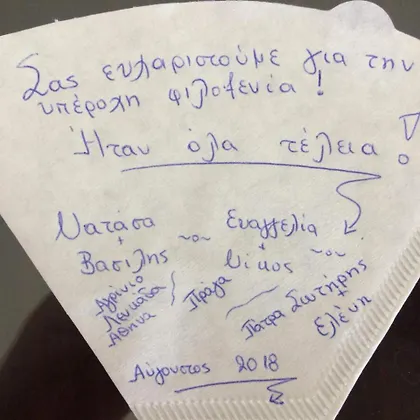 Σας ευχαριστούμε για την
υπέροχη φιλοξενία!
Ήταν όλα τέλεια!
Νατάσα
+
Βασιλης
Ευαγγελία
+
Νίκος
Αγρίνιο
Λευκάδα
Αθήνα
Πράγα
Πάτρα
Σωτήρης
+
Ελένη
Αύγουστος 2018